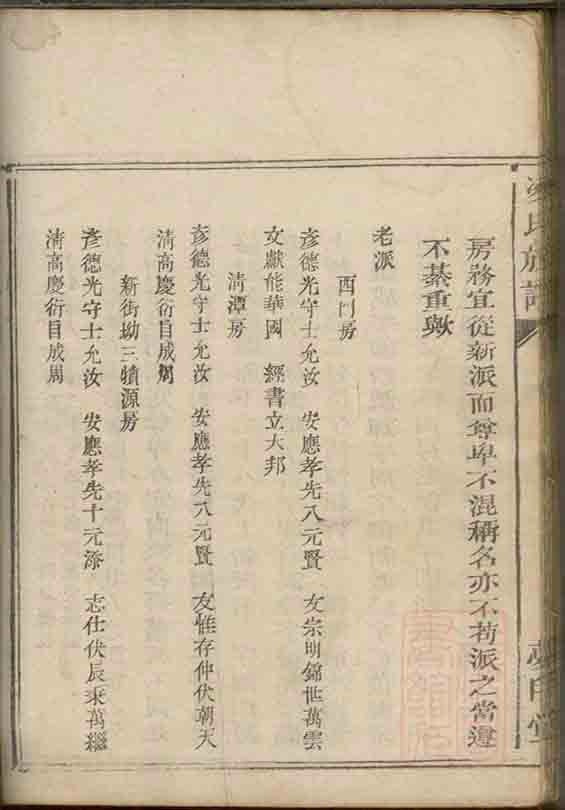 房務宜從新派而尊卑不混稱名亦不苟派之當遵
不綦重歟
老派
西門房
彥德光守士允汝　安應孝先八元賢　友宗明錦世萬雲
文獻能華國　經書立大邦
清潭房
彥德光守士允汝　安應孝先八元賢　友惟存仲伏朝天
清高慶衍目成周
新街坳三犢源房
彥德光守士允汝　安應孝先十元添　志仕伏辰秉萬繼
清高慶衍目成周
氏族譜
堂